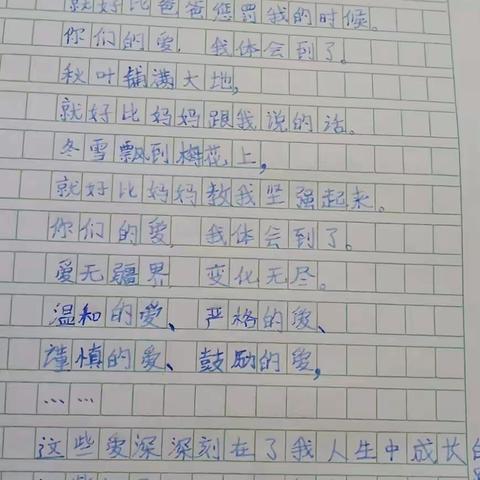 就好比爸爸惩罚我的时候。
你们的爱,我体会到了。
秋叶铺满大地,
就好比妈妈跟我说的话。
冬雪飘到梅花上,
就好比妈妈教我坚强起来。
你们的爱,我体会到了。
爱无疆界,变化无尽。
温和的爱、严格的爱、
谨慎的爱、鼓励的爱,
……
这些爱深深刻在了我人生中成长的